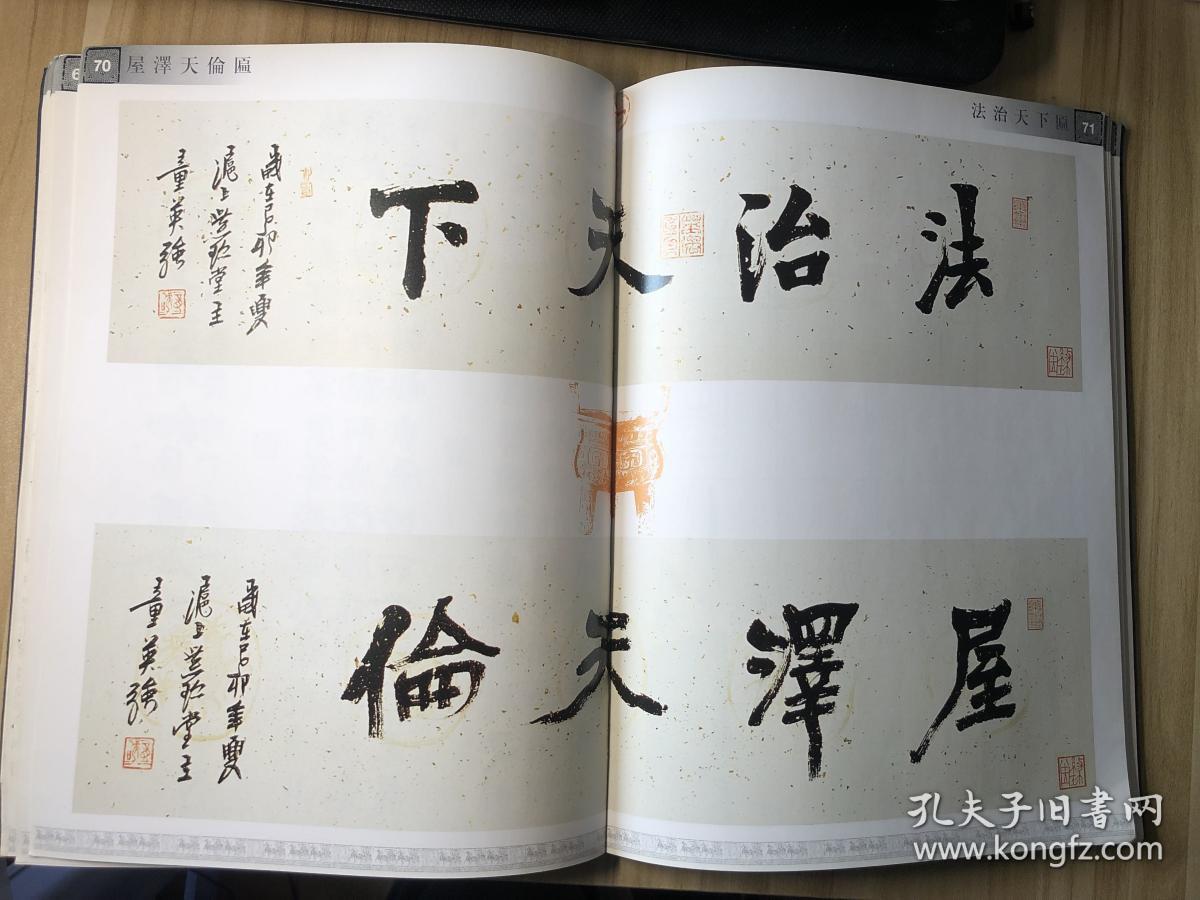 70 屋澤天倫匾
法治天下匾 71
法治天下
歲在己卯年夏
滬上堂主
童英強
屋澤天倫
歲在己卯年夏
滬上堂主
童英強
孔夫子旧書网
www.kongfz.com